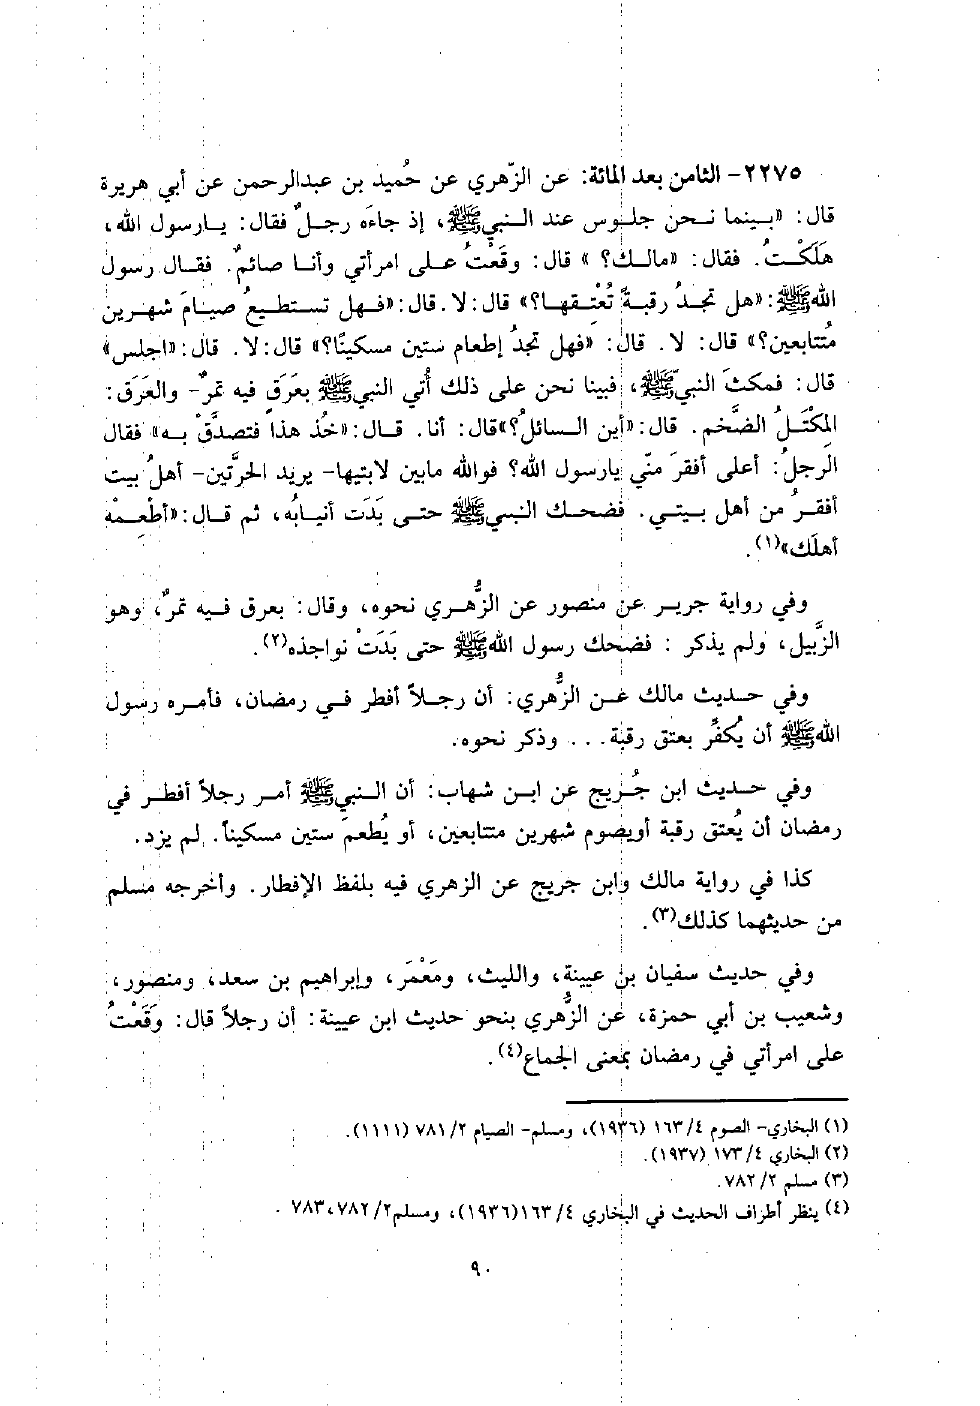 ٢٢٧٥- الثامن بعد المائة: عن الزّهري عن حُميد بن عبدالرحمن عن أبي هريرة
قال: «بينما نحن جلوس عند النبيﷺ، إذ جاءَه رجلٌ فقال: يارسول الله،
هَلَكْتُ. فقال: «مالك؟» قال: وقَعْتُ على امرأتي وأنا صائمٌ. فقال رسول
اللهﷺ: «هل تجدُ رقبةً تُعْتِقها؟» قال: لا. قال: «فهل تستطيعُ صيامَ شهرين
مُتتابعين؟» قال: لا. قال: «فهل تجدُ إطعام ستين مسكينًا؟» قال: لا. قال: «اجلس»
قال: فمكثَ النبيّﷺ، فبينا نحن على ذلك أُتي النبيﷺ بعَرَقٍ فيه تمرٌ- والعَرَق:
المِكْتَلُ الضَّخم. قال: «أين السائلُ؟» قال: أنا. قال: «خُذ هذا فتصدَّقْ به» فقال
الرجلُ: أعلى أفقرَ منّي يارسول الله؟ فوالله مابين لابتيها- يريد الحرَّتين- أهلُ بيت
أفقرُ من أهل بيتي. فضحك النبيﷺ حتى بَدَت أنيابُه، ثم قال: «أطْعِمْه
أهلَك»(١).
وفي رواية جرير عن منصور عن الزُّهري نحوه، وقال: بعرق فيه تمرٌ، وهو
الزَّبيل، ولم يذكر: فضحك رسول اللهﷺ حتى بَدَتْ نواجذه(٢).
وفي حديث مالك عن الزُّهري: أن رجلاً أفطر في رمضان، فأمره رسول
اللهﷺ أن يُكفِّر بعتق رقبة... وذكر نحوه.
وفي حديث ابن جُريج عن ابن شهاب: أن النبيﷺ أمر رجلاً أفطر في
رمضان أن يُعتق رقبة أويصوم شهرين متتابعين، أو يُطعم ستين مسكيناً. لم يزد.
كذا في رواية مالك وابن جريج عن الزهري فيه بلفظ الإفطار. وأخرجه مسلم
من حديثهما كذلك(٣).
وفي حديث سفيان بن عيينة، والليث، ومَعْمَر، وإبراهيم بن سعد، ومنصور،
وشعيب بن أبي حمزة، عن الزُّهري بنحو حديث ابن عيينة: أن رجلاً قال: وَقَعْتُ
على امرأتي في رمضان بمعنى الجماع(٤).
(١) البخاري- الصوم ٤/ ١٦٣ (١٩٣٦)، ومسلم- الصيام ٢/ ٧٨١ (١١١١).
(٢) البخاري ٤/ ١٧٣ (١٩٣٧).
(٣) مسلم ٢/ ٧٨٢.
(٤) ينظر أطراف الحديث في البخاري ٤/ ١٦٣(١٩٣٦)، ومسلم٢/ ٧٨٢، ٧٨٣.
٩٠